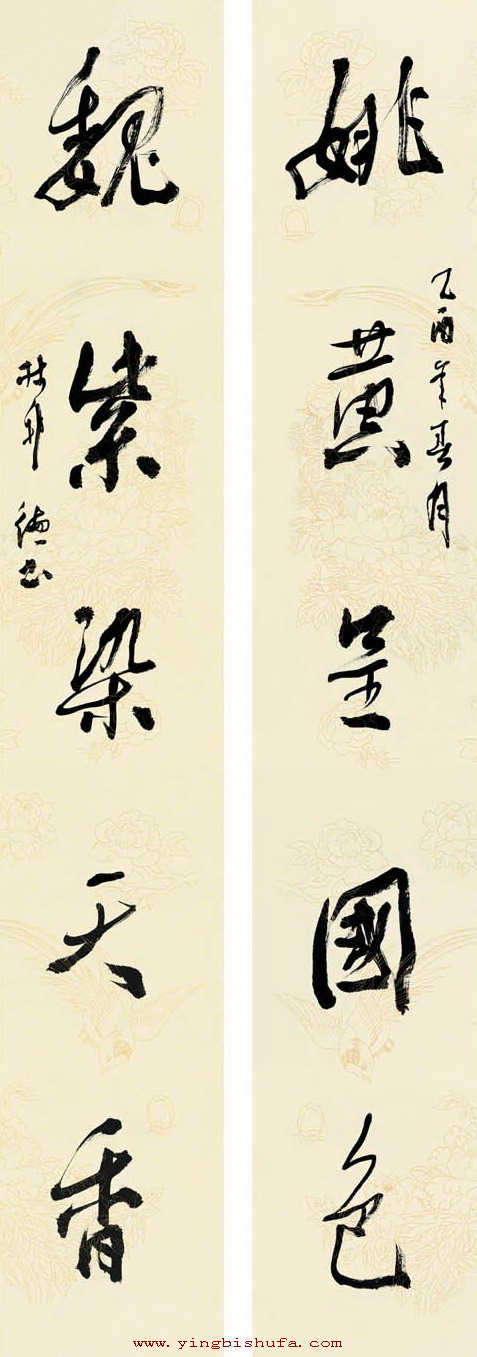 姚黄呈國色
乙酉年春月
魏紫染天香
www.yingbishufa.com